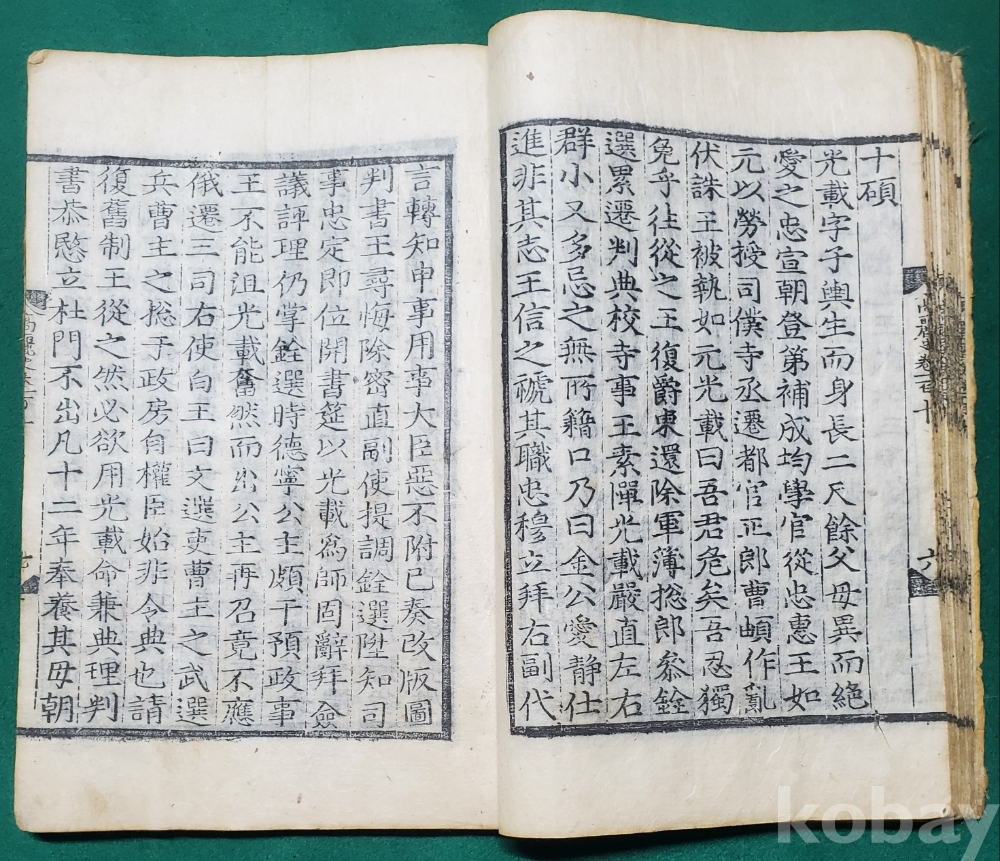 十碩
光載字子輿生而身長二尺餘父母異而絶
愛之忠宣朝登第補成均學官從忠惠王如
元以勞授司僕寺丞遷都官正郎曹頔作亂
伏誅王被執如元光載曰吾君危矣吾忍獨
免乎往從之王復爵東還除軍簿摠郎叅銓
選累遷判典校寺事王素憚光載嚴直左右
群小又多忌之無所籍口乃曰金公愛静仕
進非其志王信之褫其職忠穆立拜右副代
高麗史卷一百十
六
言轉知申事用事大臣惡不附己奏改版圖
判書王尋悔除密直副使提調銓選陞知司
事忠定即位開書筵以光載爲師固辭拜僉
議評理仍掌銓選時德寧公主頗干預政事
王不能沮光載奮然而出公主再召竟不應
俄遷三司右使白王曰文選吏曹主之武選
兵曹主之摠于政房自權臣始非令典也請
復舊制王從之然必欲用光載命兼典理判
書恭愍立杜門不出凡十二年奉養其毋朝